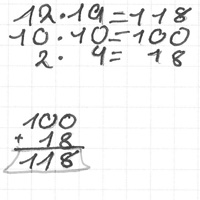 12·19=118
10·10=100
2· 9= 18
100
+ 18
118